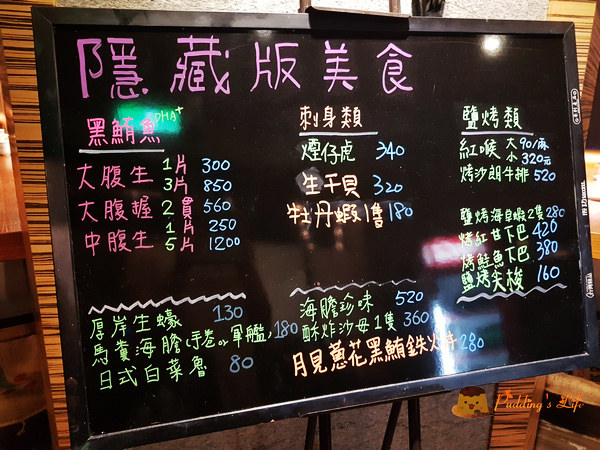 隱藏版美食
黑鮪魚 DHA+
大腹生 1片 300
3片 850
大腹握 2貫 560
中腹生 1片 250
5片 1200
刺身類
煙仔虎 340
生干貝 320
牡丹蝦1隻 180
鹽烤類
紅喉 大 90/兩
小 320元
烤沙朗牛排 520
鹽烤海白蝦2隻 280
烤紅甘下巴 420
烤鮭魚下巴 380
鹽烤尖梭 160
厚岸生蠔 130
馬糞海膽(手卷or軍艦) 180
日式白菜魯 80
海膽珍味 520
酥炸沙母1隻 360
月見蔥花黑鮪鉄火丼 280
Pudding's Life